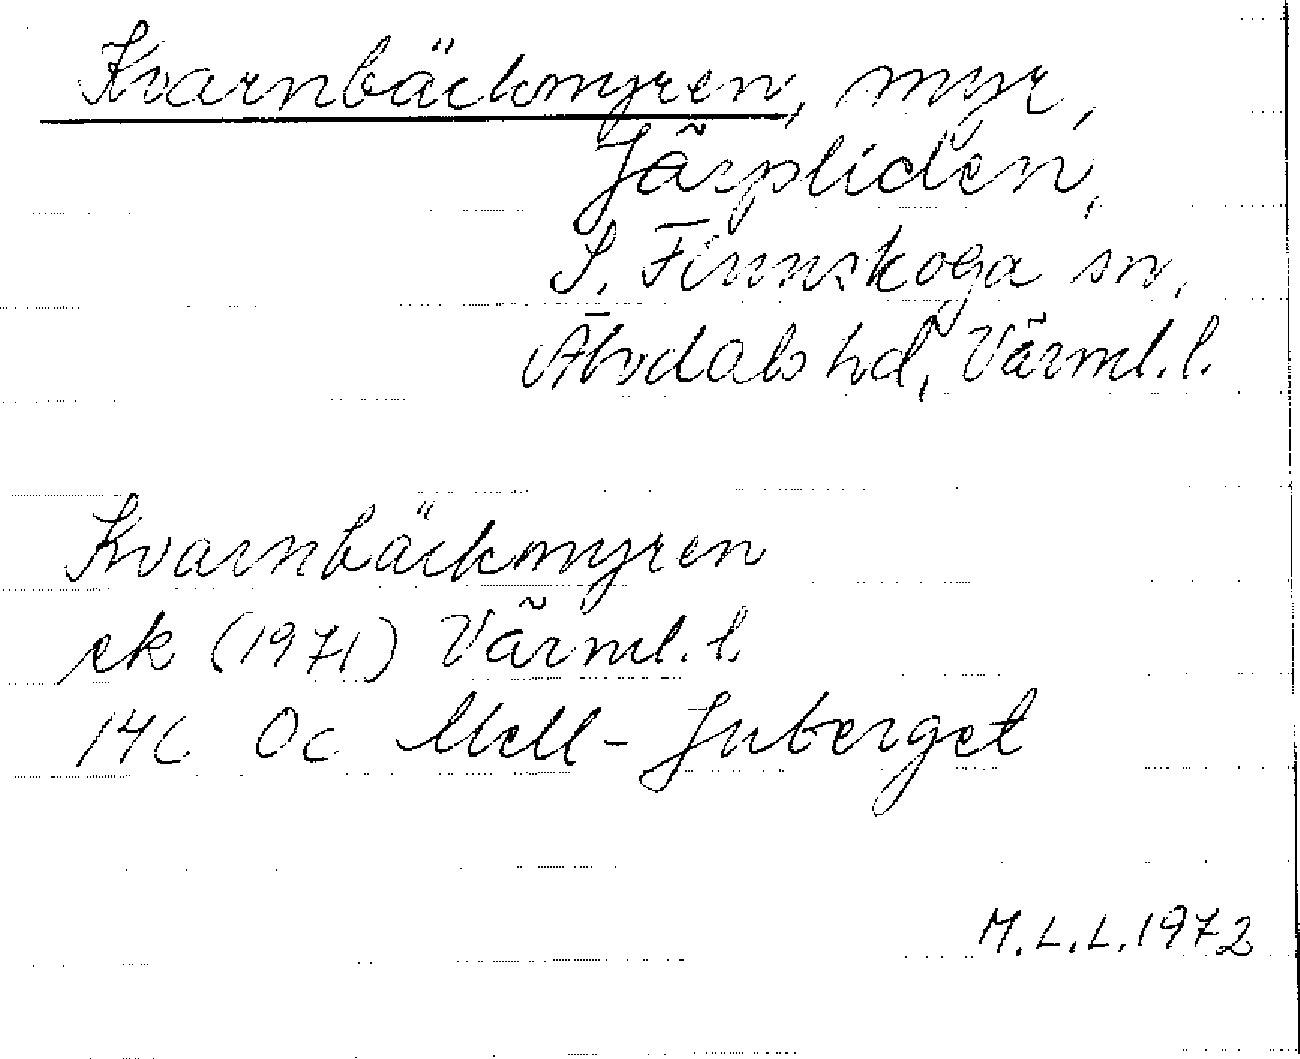 Kvarnbäckmyren, myr,
Järpliden,
S. Finnskoga sn,
Älvdals hd, Värml. l.
Kvarnbäckmyren
ek (1971) Värml. l.
14C Oc Mell-Juberget
M.L.L. 1972